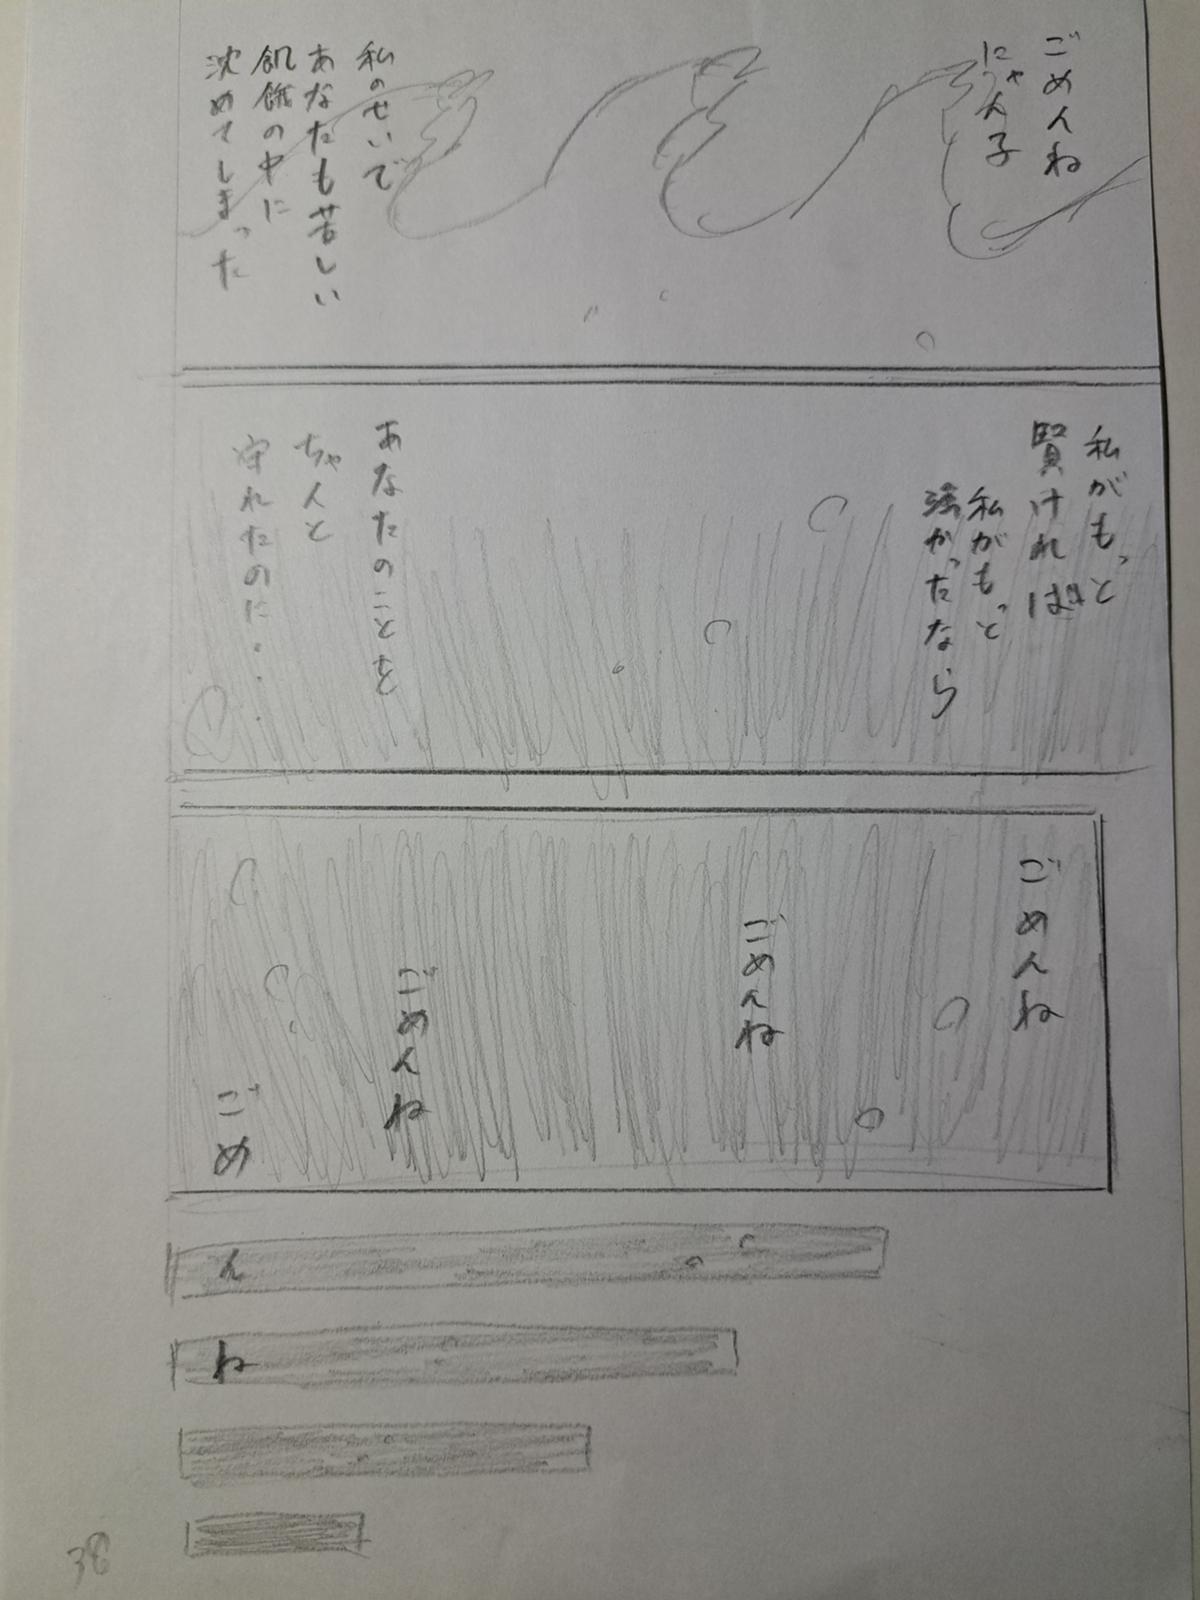 ごめんね
にゃん子
私のせいで
あなたも苦しい
飢餓の中に
沈めてしまった
私がもっと
賢ければ
私がもっと
強かったなら
あなたのことを
ちゃんと
守れたのに・・・
ごめんね
ごめんね
ごめんね
ごめ
ん
ね
38